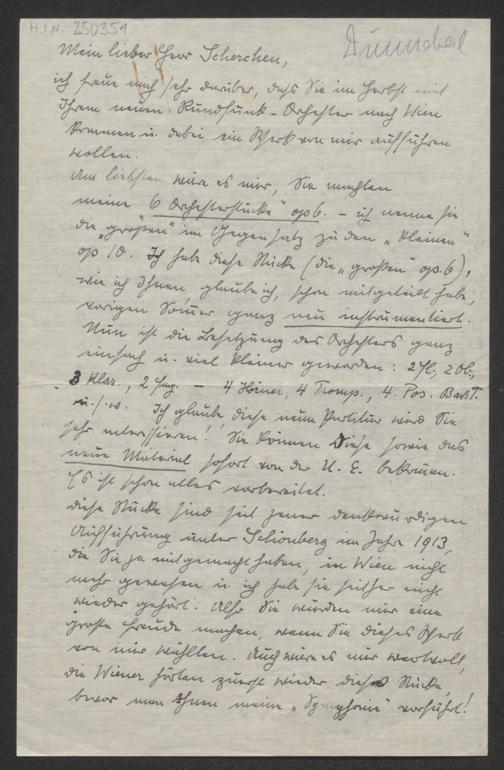 H.I.N. 250351
Mein lieber Herr Scherchen,
ich freue mich sehr darüber, dass Sie im Herbst mit
Ihrem neuen Rundfunk-Orchester nach Wien
kommen u. dabei ein Werk von mir aufführen
wollen.
Am liebsten wäre es mir, Sie machten
meine 6 Orchesterstücke" op 6. – ich nenne sie
die „großen" im Gegensatz zu den „kleinen"
op 10. Ich habe diese Stücke (die „großen" op. 6),
wie ich Ihnen glaube ich, schon mitgeteilt habe,
vorigen Somer ganz neu instrumentiert.
Nun ist die Besetzung des Orchesters ganz
einfach u. viel kleiner geworden: 2 Fl, 2 Ob.,
3 Klar., 2 Fag. – 4 Hörner, 4 Tromp., 4. Pos. Baßt.
u.s.w. Ich glaube diese neue Partitur wird Sie
sehr interessieren! Sie können diese sowie das
neue Material sofort von der U. E. bekomen.
Es ist schon alles vorbereitet.
Diese Stücke sind seit jener denkwürdigen
Aufführung unter Schönberg im Jahre 1913,
die Sie ja mitgemacht haben, in Wien nicht
mehr gewesen u. ich habe sie seither nicht
wieder gehört. Also Sie würden mir eine
große Freude machen, wenn Sie dieses Werk
von mir wählten. Auch wäre es mir wertvoll,
die Wiener hörten zuerst wieder diese Stücke,
bevor man Ihnen meine „Symphonie" vorführt!